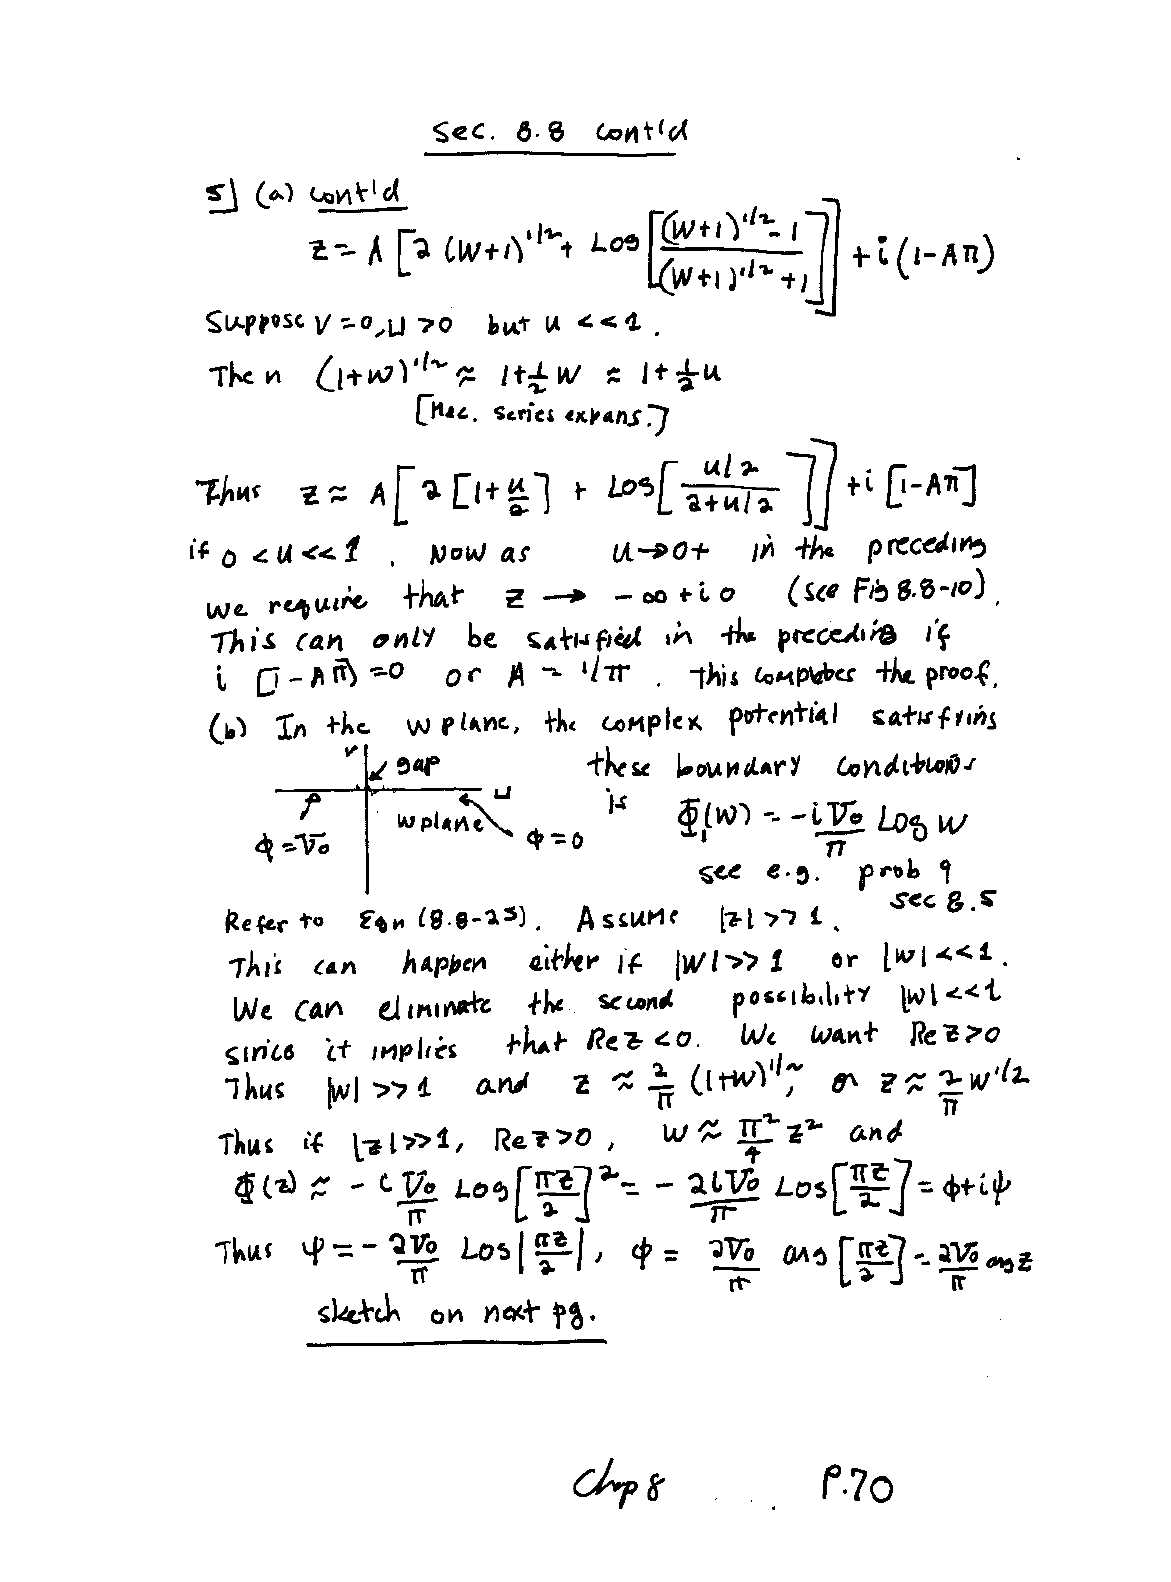 Sec. 8.8 cont'd
5] (a) cont'd
z = A [2 (w+1)^{1/2} + Log [((w+1)^{1/2} - 1)/((w+1)^{1/2} + 1)]] + i (1-Aπ)
Suppose v = 0, u > 0 but u << 1.
Then (1+w)^{1/2} ≈ 1+½w ≈ 1+½u
[Mac. series expans.]
Thus z ≈ A [2 [1+u/2] + Log [(u/2)/(2+u/2)]] + i [1-Aπ]
if 0 < u << 1. Now as u→0+ in the preceding
we require that z → -∞ + i0 (see Fig 8.8-10).
This can only be satisfied in the preceding if
i (1-Aπ) = 0 or A = 1/π. This completes the proof.
(b) In the w plane, the complex potential satisfying
v gap these boundary conditions
u is Φ₁(w) = -i V₀/π Log w
w plane
φ = V₀ φ = 0
see e.g. prob 9
sec 8.5
Refer to Eqn (8.8-25). Assume |z| >> 1.
This can happen either if |w| >> 1 or |w| << 1.
We can eliminate the second possibility |w| << 1
since it implies that Re z < 0. We want Re z > 0
Thus |w| >> 1 and z ≈ 2/π (1+w)^{1/2}, or z ≈ 2/π w^{1/2}
Thus if |z| >> 1, Re z > 0, w ≈ π²/4 z² and
Φ(z) ≈ -i V₀/π Log [πz/2]² = - 2iV₀/π Log [πz/2] = φ+iψ
Thus ψ = - 2V₀/π Log |πz/2|, φ = 2V₀/π arg [πz/2] = 2V₀/π arg z
sketch on next pg.
Chap 8 P.70